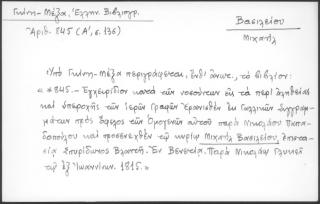 Γκίνη - Μέξα, Ἑλλην. Βιβλιογρ.
Ἀριθ. 845 (Α', σ. 136)
Βασιλείου
Μιχαήλ
Ὑπὸ Γκίνη - Μέξα περιγράφεται, ἔνθ' ἀνωτ., τὸ βιβλίον:
«*845.- Ἐγχειρίδιον κατὰ τῶν νοσούντων εἰς τὰ περὶ ἀληθείας
καὶ ὑπεροχῆς τῶν ἱερῶν Γραφῶν Ἐρανισθὲν ἐκ Γαλλικῶν συγγραμ-
μάτων πρὸς ὄφελος τῶν Ὁμογενῶν αὐτοῦ παρὰ Νικολάου Παπα-
δοπούλου καὶ προσενεχθὲν τῷ κυρίῳ Μιχαὴλ Βασιλείου, ἐπιστα-
σίᾳ Σπυρίδωνος Βλαντῆ. Ἐν Βενετίᾳ. Παρὰ Νικολάῳ Γλυκεῖ
τῷ ἐξ Ἰωαννίνων. 1815.»